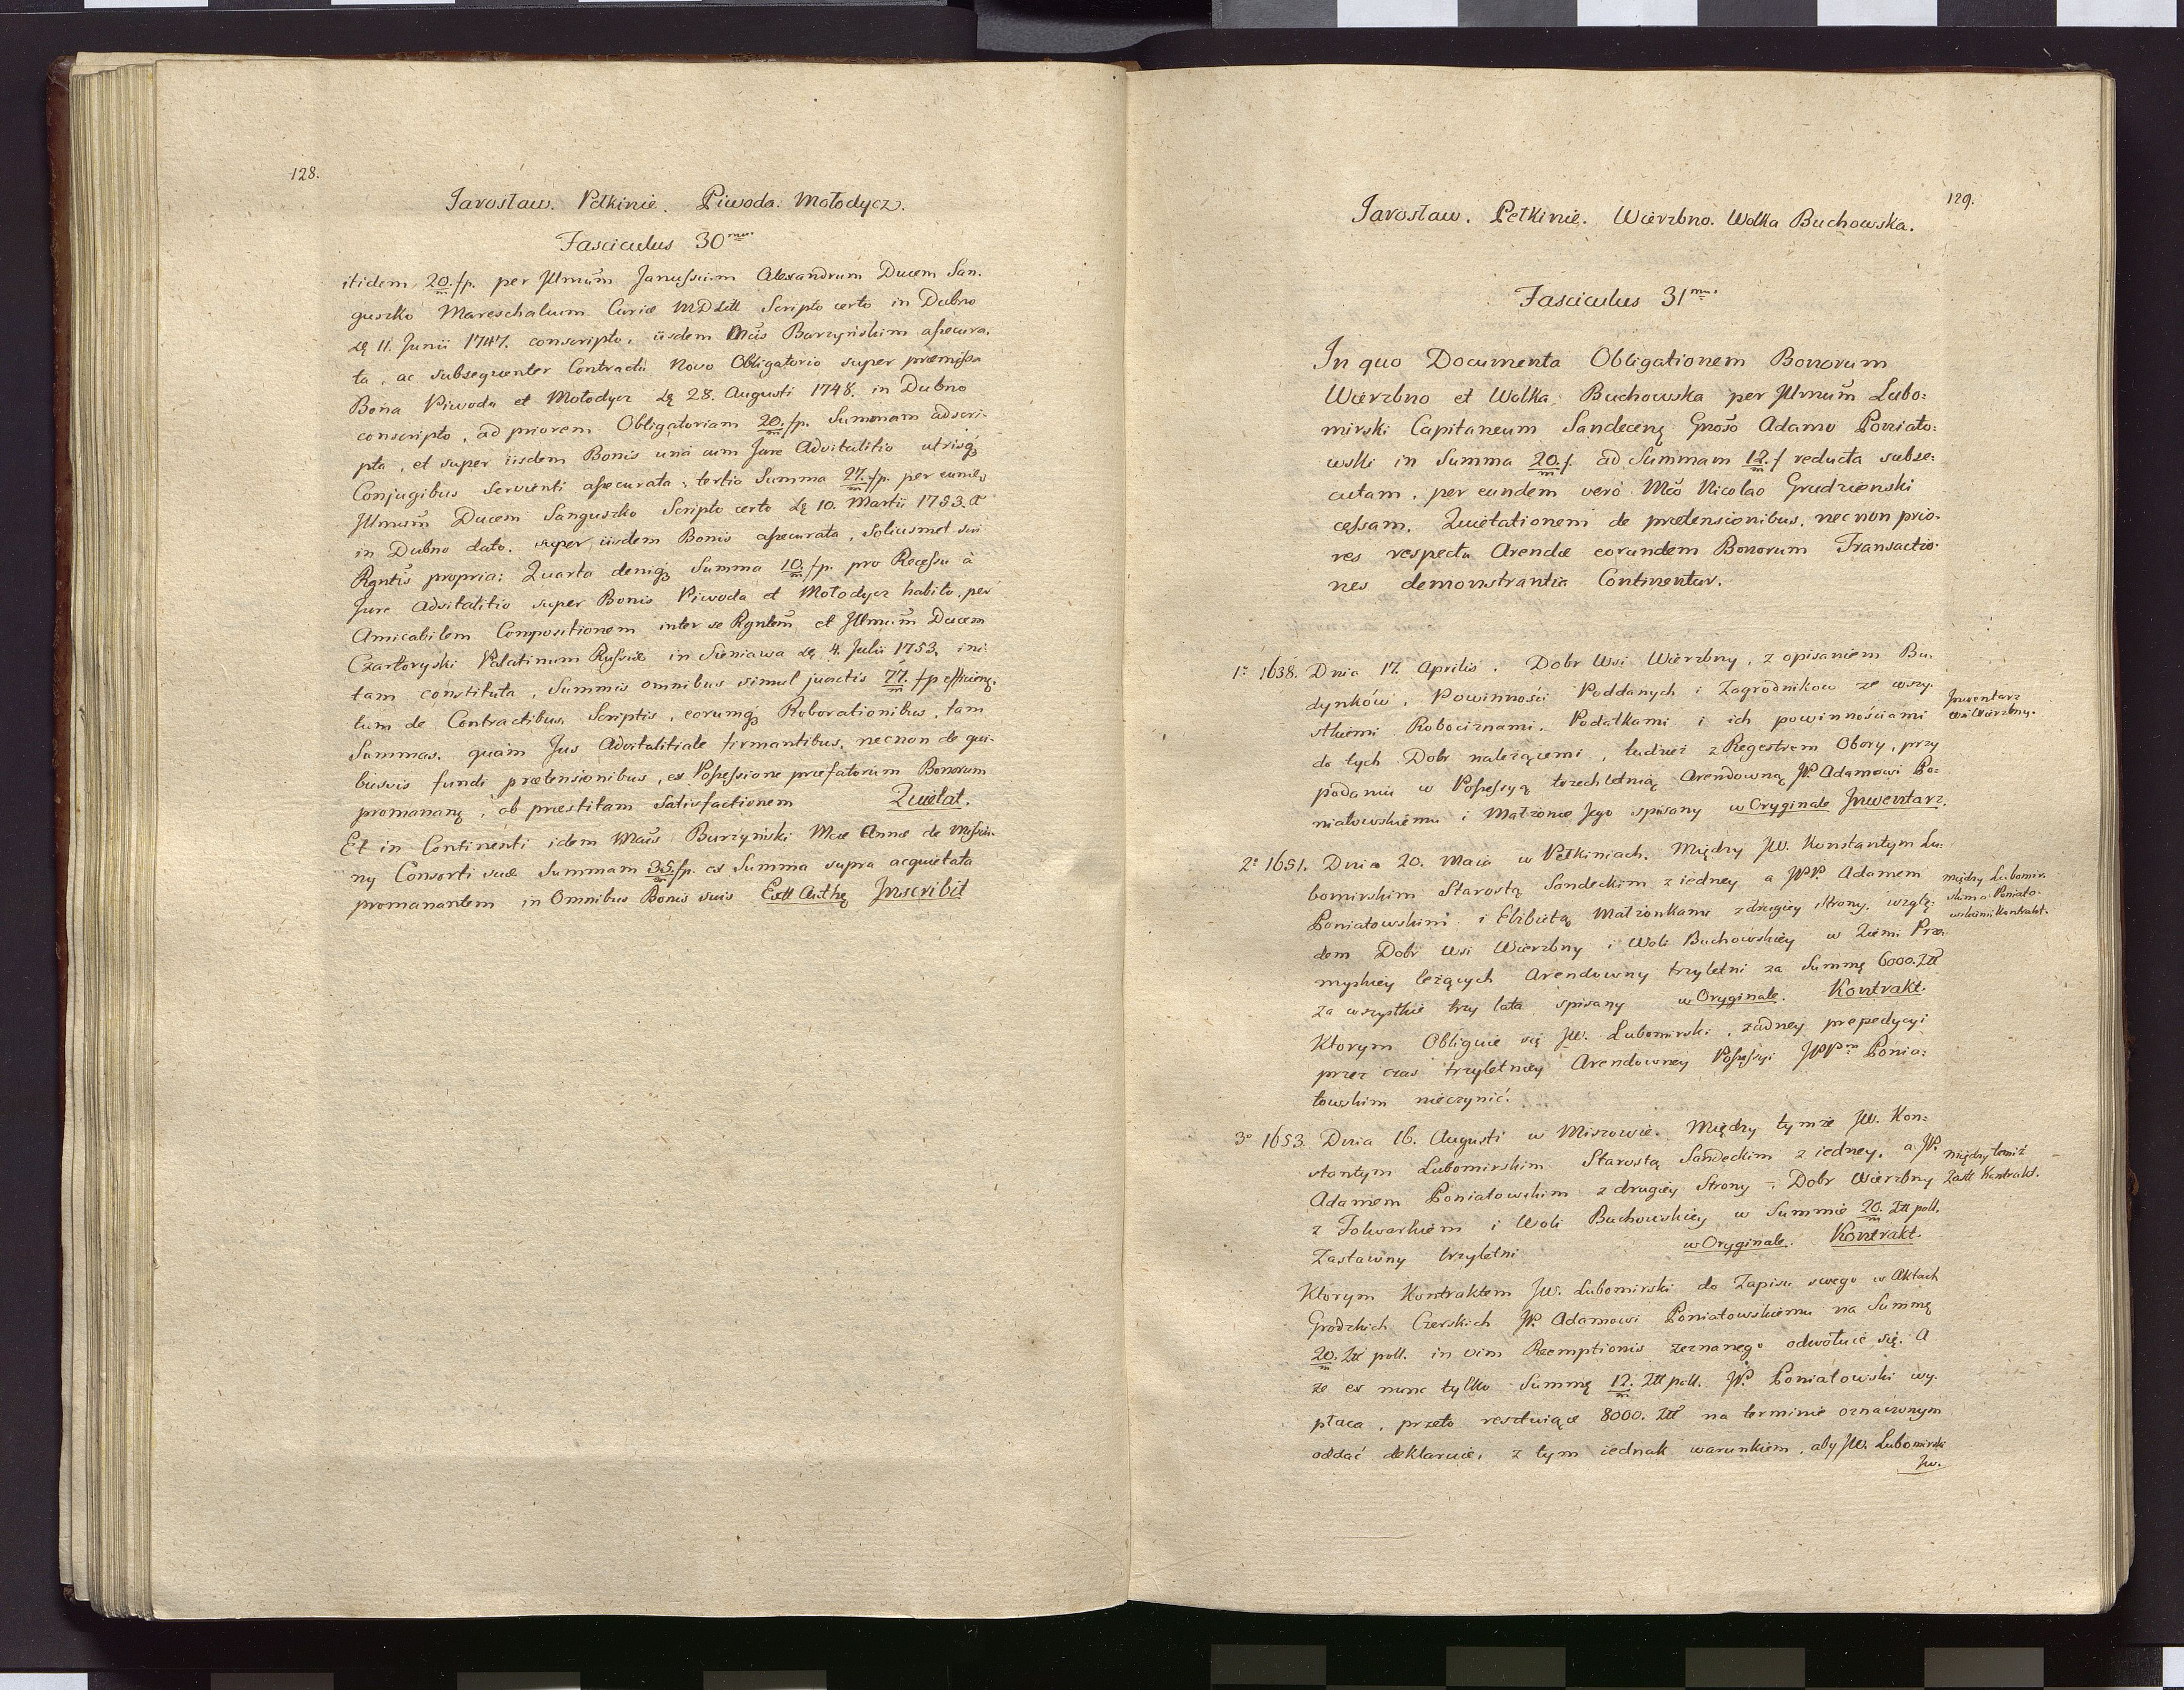 128.
Jarosław. Pełkinie. Piwoda. Mołodycz.
Fasciculus 30mus.
itidem 20/m. fp. per Jllmum Janussium Alexandrum Ducem San-
guszko Mareschalum Curiæ MDLitt Scripto certo in Dubno
dę 11. Junii 1747. conscripto, iisdem Mcis Burzyńskim assecura-
ta, ac subsequenter Contractu Novo Obligatorio super præmissa
Bona Piwoda et Mołodycz dę 28. Augusti 1748. in Dubno
conscripto, ad priorem Obligatoriam 20/m. fp. Summam adscri-
pta, et super iisdem Bonis una cum Jure Advitalitio utrisq3
Conjugibus servienti assecurata; tertio Summa 27/m. fp. per eunde
Jllmum Ducem Sanguszko Scripto certo dę 10. Martii 1753. A
in Dubno dato, super iisdem Bonis assecurata, soliusmet sui
Rgntis propria; Quarta deniq3 Summa 10/m. fp. pro Recessu à
Jure Advitalitio super Bonis Piwoda et Mołodycz habito, per
Amicabilem Compositionem inter se Rgntem et Jllmum Ducem
Czartoryski Palatinum Russiæ in Sieniawa dę 4. Julii 1753. ini-
tam constituta, Summis omnibus simul junctis 77/m. fp efficient.
tum de Contractibus, Scriptis, eorumq3 Roborationibus, tam
Summas, quam Jus Advitalitiale firmantibus, necnon de qui-
busvis fundi prætensionibus, ex Possessione præfatorum Bonorum
promanan, ob præstitam Satisfactionem Quietat.
Et in Continenti idem Mcus Burzyński Mcæ Annæ de
ny Consorti suæ Summam 35/m. fp. ex Summa supra acquietata
promanantem in Omnibus Bonis suis Extt Authę Jnscribit
129.
Jarosław. Pełkinie. Wierzbno. Wolka Buchowska.
Fasciculus 31mus.
In quo Documenta Obligationem Bonorum
Wierzbno et Wolka Buchowska per Jllmum Lubo-
mirski Capitaneum Sandecen Gnoso Adamo Poniato-
wski in Summa 20/m. f ad Summam 12/m. f reducta subse-
cutam, per eundem vero Mco Nicolao Grudzienski
cessam. Quietationem de prætensionibus, necnon prio-
res respectu Arendæ eorundem Bonorum Transactio-
nes demonstrantia Continentur.
1o 1638. Dnia 17. Aprilis. Dobr Wsi Wierzbny, z opisaniem Bu-
dynków, Powinności Poddanych i Zagrodnikow ze wszy-
stkiemi Robociznami, Podatkami i ich powinnościami
do tych Dobr należącemi, tudzież z Regestrem Obory, przy
podaniu w Possessyą trzechletnią Arendowną JP. Adamowi Po-
niatowskiemu i Małżonce Jego spisany w Oryginale Jnwentarz.
Jnwentarz
wsi Wierzbny.
2o 1651. Dnia 20. Maia w Pełkiniach. Między JW. Konstantym Lu-
bomirskim Starostą Sandeckim z iedney a JPP. Adamem
Poniatowskim i Elżbietą Małżonkami z drugiey strony, wzglę-
dem Dobr Wsi Wierzbny i Woli Buchowskiey w Ziemi Prze-
myskiey leżących Arendowny trzyletni za Summę 6000. Złł
za wszystkie trzy lata spisany w Oryginale. Kontrakt.
Ktorym Obliguie się JW. Lubomirski, żadney prepedycyi
przez czas trzyletniey Arendowney Possessyi JPPm Ponia-
towskim nieczynić.
między Lubomir-
skim a Poniato-
wskiemi Kontrakt.
3o 1653. Dnia 16. Augusti w Miszowie. Między tymże JW. Kon-
stantym Lubomirskim Starostą Sandeckim z iedney, a JP.
Adamem Poniatowskim z drugiey Strony – Dobr Wierzbny
z Folwarkiem i Woli Buchowskiey w Summie 20/m. Złł poll.
Zastawny trzyletni w Oryginale. Kontrakt.
między temiż
Zastt Kontrakt.
Ktorym Kontraktem JW. Lubomirski do Zapisu swego w Aktach
Grodzkich Czerskich JP. Adamowi Poniatowskiemu na Summę
20/m. Złł poll. in vim Reemptionis zeznanego odwołuie się. A
że ex nunc tylko Summę 12/m. Złł poll. JP. Poniatowski wy-
płaca, przeto resztuiące 8000. Złł na terminie oznaczonym
oddać deklaruie, z tym iednak warunkiem, aby JW. Lubomirski
JW.